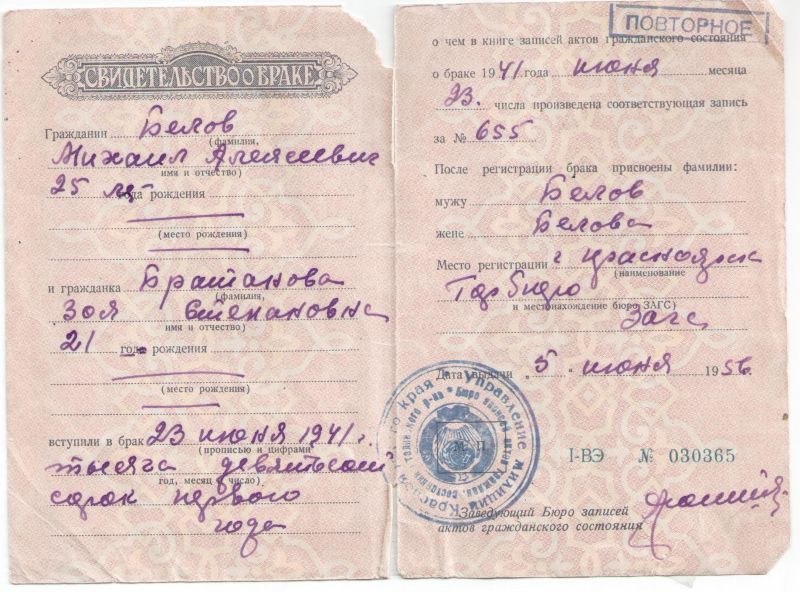 СВИДЕТЕЛЬСТВО О БРАКЕ
Гражданин Белов
(фамилия,
Михаил Алексеевич
имя и отчество)
25 лет года рождения
(место рождения)
и гражданка Братанова
(фамилия,
Зоя Степановна
имя и отчество)
21 года рождения
(место рождения)
вступили в брак 23 июня 1941 г.
(прописью и цифрами
тысяча девятьсот
год, месяц и число)
сорок первого
года
ПОВТОРНОЕ
о чем в книге записей актов гражданского состояния
о браке 1941 года июня месяца
23. числа произведена соответствующая запись
за № 655
После регистрации брака присвоены фамилии:
мужу Белов
жене Белова
Место регистрации г Красноярск
(наименование
Горбюро
и местонахождение бюро ЗАГС)
Загс
Дата выдачи „5" июня 1956
М. П.
I-ВЭ № 030365
Заведующий Бюро записей
актов гражданского состояния